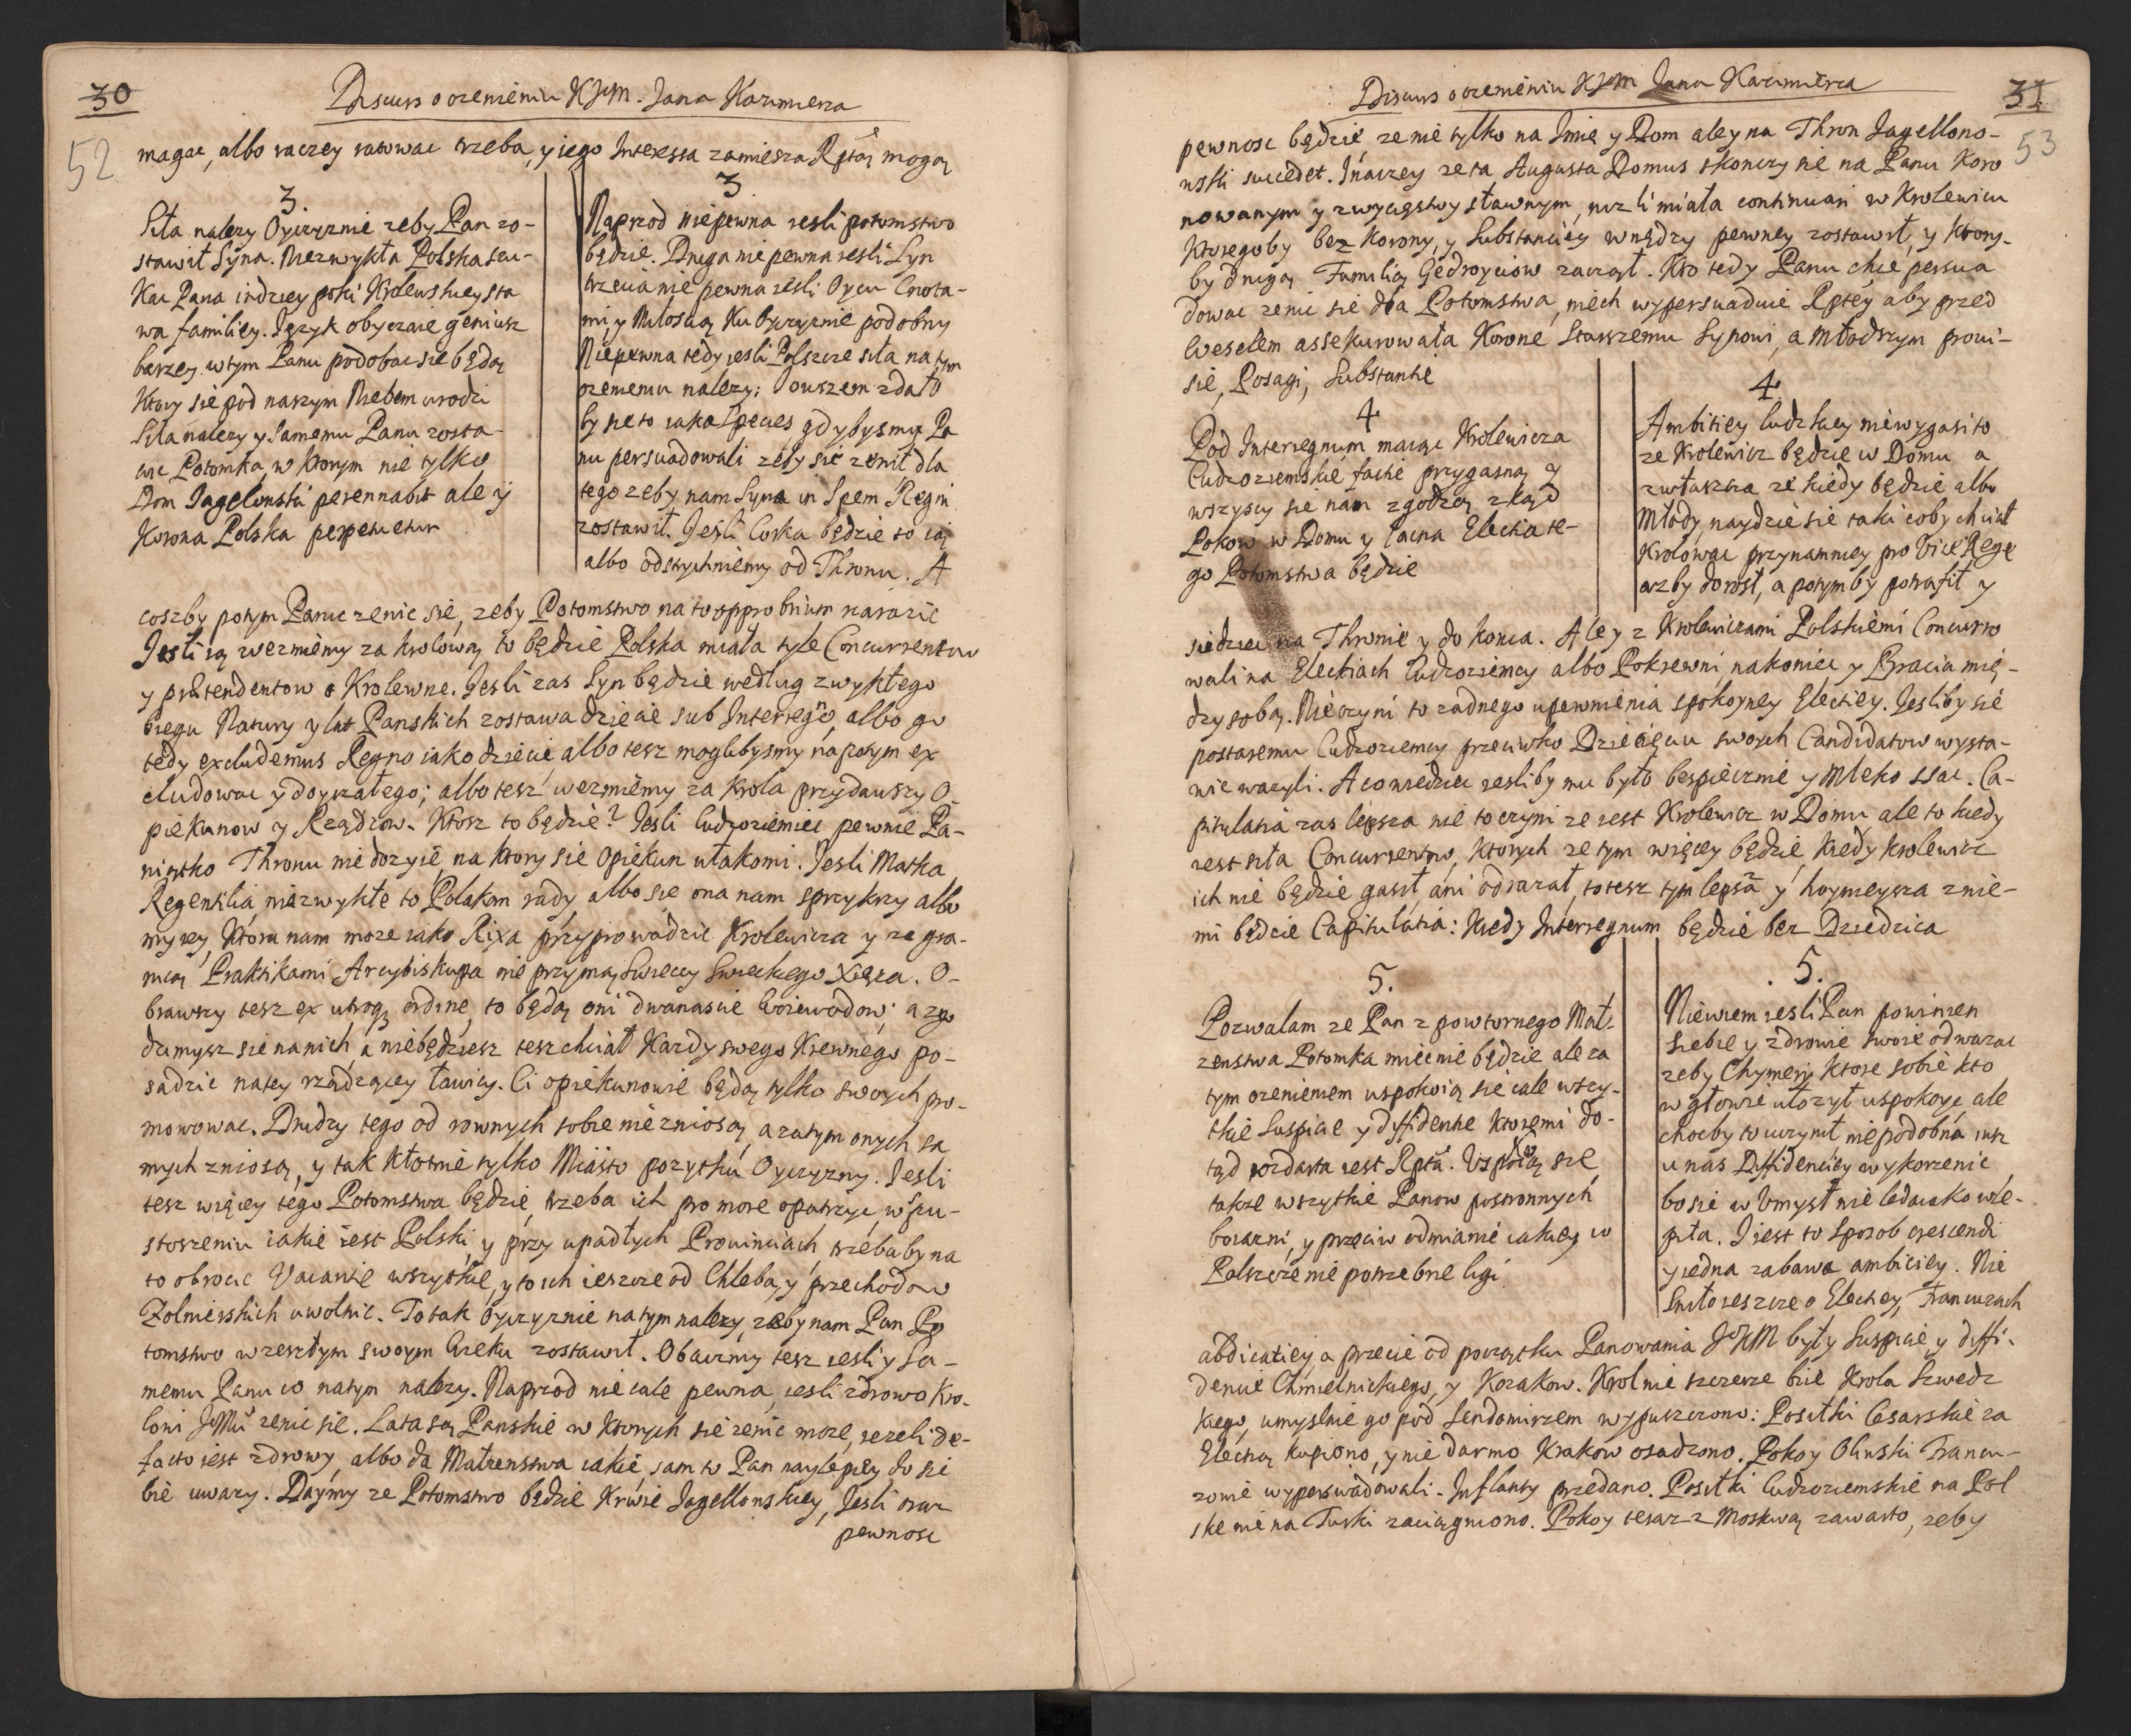 30
52
Discurs o ozenieniu KJM. Jana Kazimierza
magac, albo raczey ratowac trzeba, y iego Interessa zamiesza Rptą mogą
3
Siła nalezy Oyczyznie zeby Pan zo-
stawił Syna. Niezwykła Polska szu-
kac Pana indziey poki Krolewskiey sta
wa familiey. Język obyczaie geniusz
barzey w tym Panu podobac sie będą
Ktory się pod naszym Niebem urodzi
Siła nalezy y samemu Panu zosta-
wic Potomka, w ktorym nie tylko
Dom Jagelonski perennabit ale y
Korona Polska perpetuetur
3
Naprzod niepewna iesli potomstwo
będzie. Druga niepewna iesli Syn
trzecia nie pewna iesli Oycu Cnota-
mi, y Miłoscią Ku Oyczyznie podobny
Niepewna tedy iesli Polszcze siła na tym
ozenieniu nalezy: I owszem zdało
by sie to iaka Species gdybysmy Pa
nu persuadowali zeby się zenił dla
tego zeby nam Syna in Spem Regni
zostawił. Jesli Corka będzie to ią
albo odstrychniemy od Thronu. A
coszby potym Panu zenic się, zeby Potomstwo na to opprobrium narazic
Jesli ią wezmiemy za Krolową to będzie Polska miała tyle Concurrentow
y prætendentow o Krolewne. Jesli zas Syn będzie według zwykłego
biegu Natury y lat Panskich zostawa dziecie sub Interregno, albo go
tedy excludemus Regno iako dziecie, albo tesz moglibysmy na potym ex
cludowac y doyzrałego; albo tesz wezmiemy za Krola przydawszy O-
piekunow y Rządcow. Ktosz to będzie? Jesli Cudzoziemiec pewnie Pa-
niątko Thronu nie dozyie, na ktory sie Opiekun ułakomi. Jesli Matka
Regentilia niezwykłe to Polakom rady albo się ona nam sprzykrzy albo
my iey, Ktora nam moze iako Rixa przyprowadzic Krolewicza y za gra-
nicą Praktikami Arcybiskupa nie przyimą Swieccy Swieckiego Xięza. O-
brawszy tesz ex utroq ordine, to będą oni dwanascie Woiewodow; a zgo
dzimysz sie na nich, a niebędziesz tesz chciał Kazdy swego Krewnego po-
sadzic na tey rządzącey ławicy. Ci opiekunowie będą tylko swoych pro-
mowowac. Drudzy tego od rownych sobie nie zniosą, a zatym onych sa
mych zniosą, y tak Kłotnie tylko Miasto pozytku Oyczyzny. Jesli
tesz więcey tego Potomstwa będzie, trzeba ich pro more opatrzyc, w spu-
stoszeniu iakie iest Polski, y przy upadłych Prowinciach, trzeba by na
to obrocic Vacantie wszytkie, y to ich ieszcze od Chleba, y przechodow
Zołnierskich uwolnic. To tak Oyczyznie na tym nalezy, zeby nam Pan Po
tomstwo w zeszłym swoym Wieku zostawił. Obaczmy tesz iesli y Sa-
memu Panu co na tym nalezy. Naprzod nie cale pewna, iesli zdrowo Kro-
lowi JeMu zenic sie. Lata są Panskie w ktorych się zenic moze, iezeli de-
facto iest zdrowy, albo da Małzenstwa iakie, sam to Pan naylepiey do sie
bie uwazy. Daymy ze Potomstwo będzie Krwie Jagellonskiey, Jesli oraz
pewnosc
Discurs o ozenieniu KJM Jana Kazimierza
31
53
pewnosc będzie ze nie tylko na Imię y Dom ale y na Thron Jagellono-
wski succedet. Inaczey ze ta Augusta Domus skonczy się na Panu Koro
nowanym y zwycięstwy sławnym, niz li miała continuari w Krolewicu
Ktoregoby bez Korony, y Substanciey w nędzy pewney zostawił, y ktory-
by drugą Familią Gedroyciow zaczął. Kto tedy Panu chce persua
dowac zenic się dla Potomstwa, niech wypersuaduie Rptey aby przed
Weselem assekurowała Korone Starszemu Synowi, a Młodszym prowi-
sie, Posagi, Substantie
4
Pod Interregnum maiąc Krolewicza
Cudzoziemskie factie przygasną y
wszyscy się nam zgodzą zkąd
Pokoy w Domu y łacna Electia te-
go Potomstwa będzie
4
Ambitiey ludzkiey niewygasi to
ze Krolewicz będzie w Domu a
zwłaszcza ze kiedy będzie albo
Młody, naydzie się taki coby chciał
Krolowac przynamniey pro Vice Rege
azby dorosł, a potymby potrafił y
siedziec na Thronie y do konca. Ale y z Krolewiczami Polskiemi Concurro
wali na Elecktiach Cudzoziemcy albo Pokrewni, nakoniec y Bracia mię-
dzy sobą. Nie czyni to zadnego upewnienia spokoyney Electiey. Jesliby się
postaremu Cudzoziemcy przeciwko Dziecięciu swoych Candidatow wysta-
wic wazyli. A co wiedziec iesliby mu było bespiecznie y Mleko ssac. Ca-
pitulatia zas lepsza nie to czyni ze iest Krolewicz w Domu ale to kiedy
iest siła Concurrentow, Ktorych ze tym więcey będzie, kiedy krolewicz
ich nie będzie gasił, ani odrazał, to tesz tym lepsza y hoynieysza z nie-
mi będzie Capitulatia: kiedy Interregnum będzie bez Dziedzica
5.
Pozwalam ze Pan z powtornego Mał-
zenstwa Potomka miec nie będzie ale za
tym ozenieniem uspokoią się cale wszy-
tkie Suspicie y diffidentie ktoremi do-
tąd rozdarta iest Rpta. Uspokoią się
takze wszytkie Panow postronnych
boiazni, y przeciw odmianie iakiey w
Polszcze nie potrzebne ligi
5.
Niewiem iesli Pan powinien
Siebie y zdrowie swoie odwazac
zeby Chymery ktore sobie kto
w głowie ułozył uspokoyc, ale
chocby to uczynił niepodobna iusz
u nas Diffidenciey wykorzenic
bo się w Umysł nie ledaiako wle-
piła. I iest to sposob crescendi
y iedna zabawa ambiciey. Nie
Sniło ieszcze o Electiey, Francuzach
abdicatiey, a przecie od początku Panowania JKM były Suspicie, y diffi-
dencie Chmielnickiego, y Kozakow. Krol nie szczerze bie Krola Szwedz
kiego, umyslnie go pod Sendomirzem wypuszczono: Positki Cesarskie za
Electią kupiono, y nie darmo Krakow osadzono. Pokoy Oliwski Francu-
zowie wyperswadowali. Inflanty przedano. Positki Cudzoziemskie na Pol
skę nie na Turki zaciągniono. Pokoy teraz z Moskwą zawarto, zeby